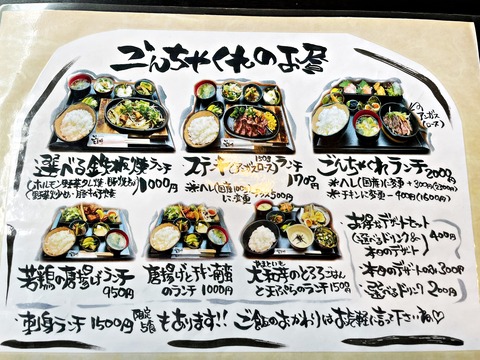 ごんちゃくれのお昼
選べる鉄板焼ランチ
1000円
ステーキ(アンガスロース)150gランチ
1700円
※ヘレ(国産)100gに変更 +500円
のアンガス(ロース)
ごんちゃくれランチ 2000円
※ヘレ(国産)に変更 +300円(2300円)
※チキンに変更 −400円(1600円)
若鶏の唐揚げランチ
950円
唐揚げとチキン南蛮
のランチ 1000円
大和芋のとろろごはん
と天ぷらのランチ 1150円
お得なデザートセット
(選べるドリンク&本日のデザート) 400円
本日のデザートのみ 300円
選べるドリンク 200円
刺身ランチ 1500円 限定5食 もあります!! ご飯のおかわりはお気軽に言って下さいね♡